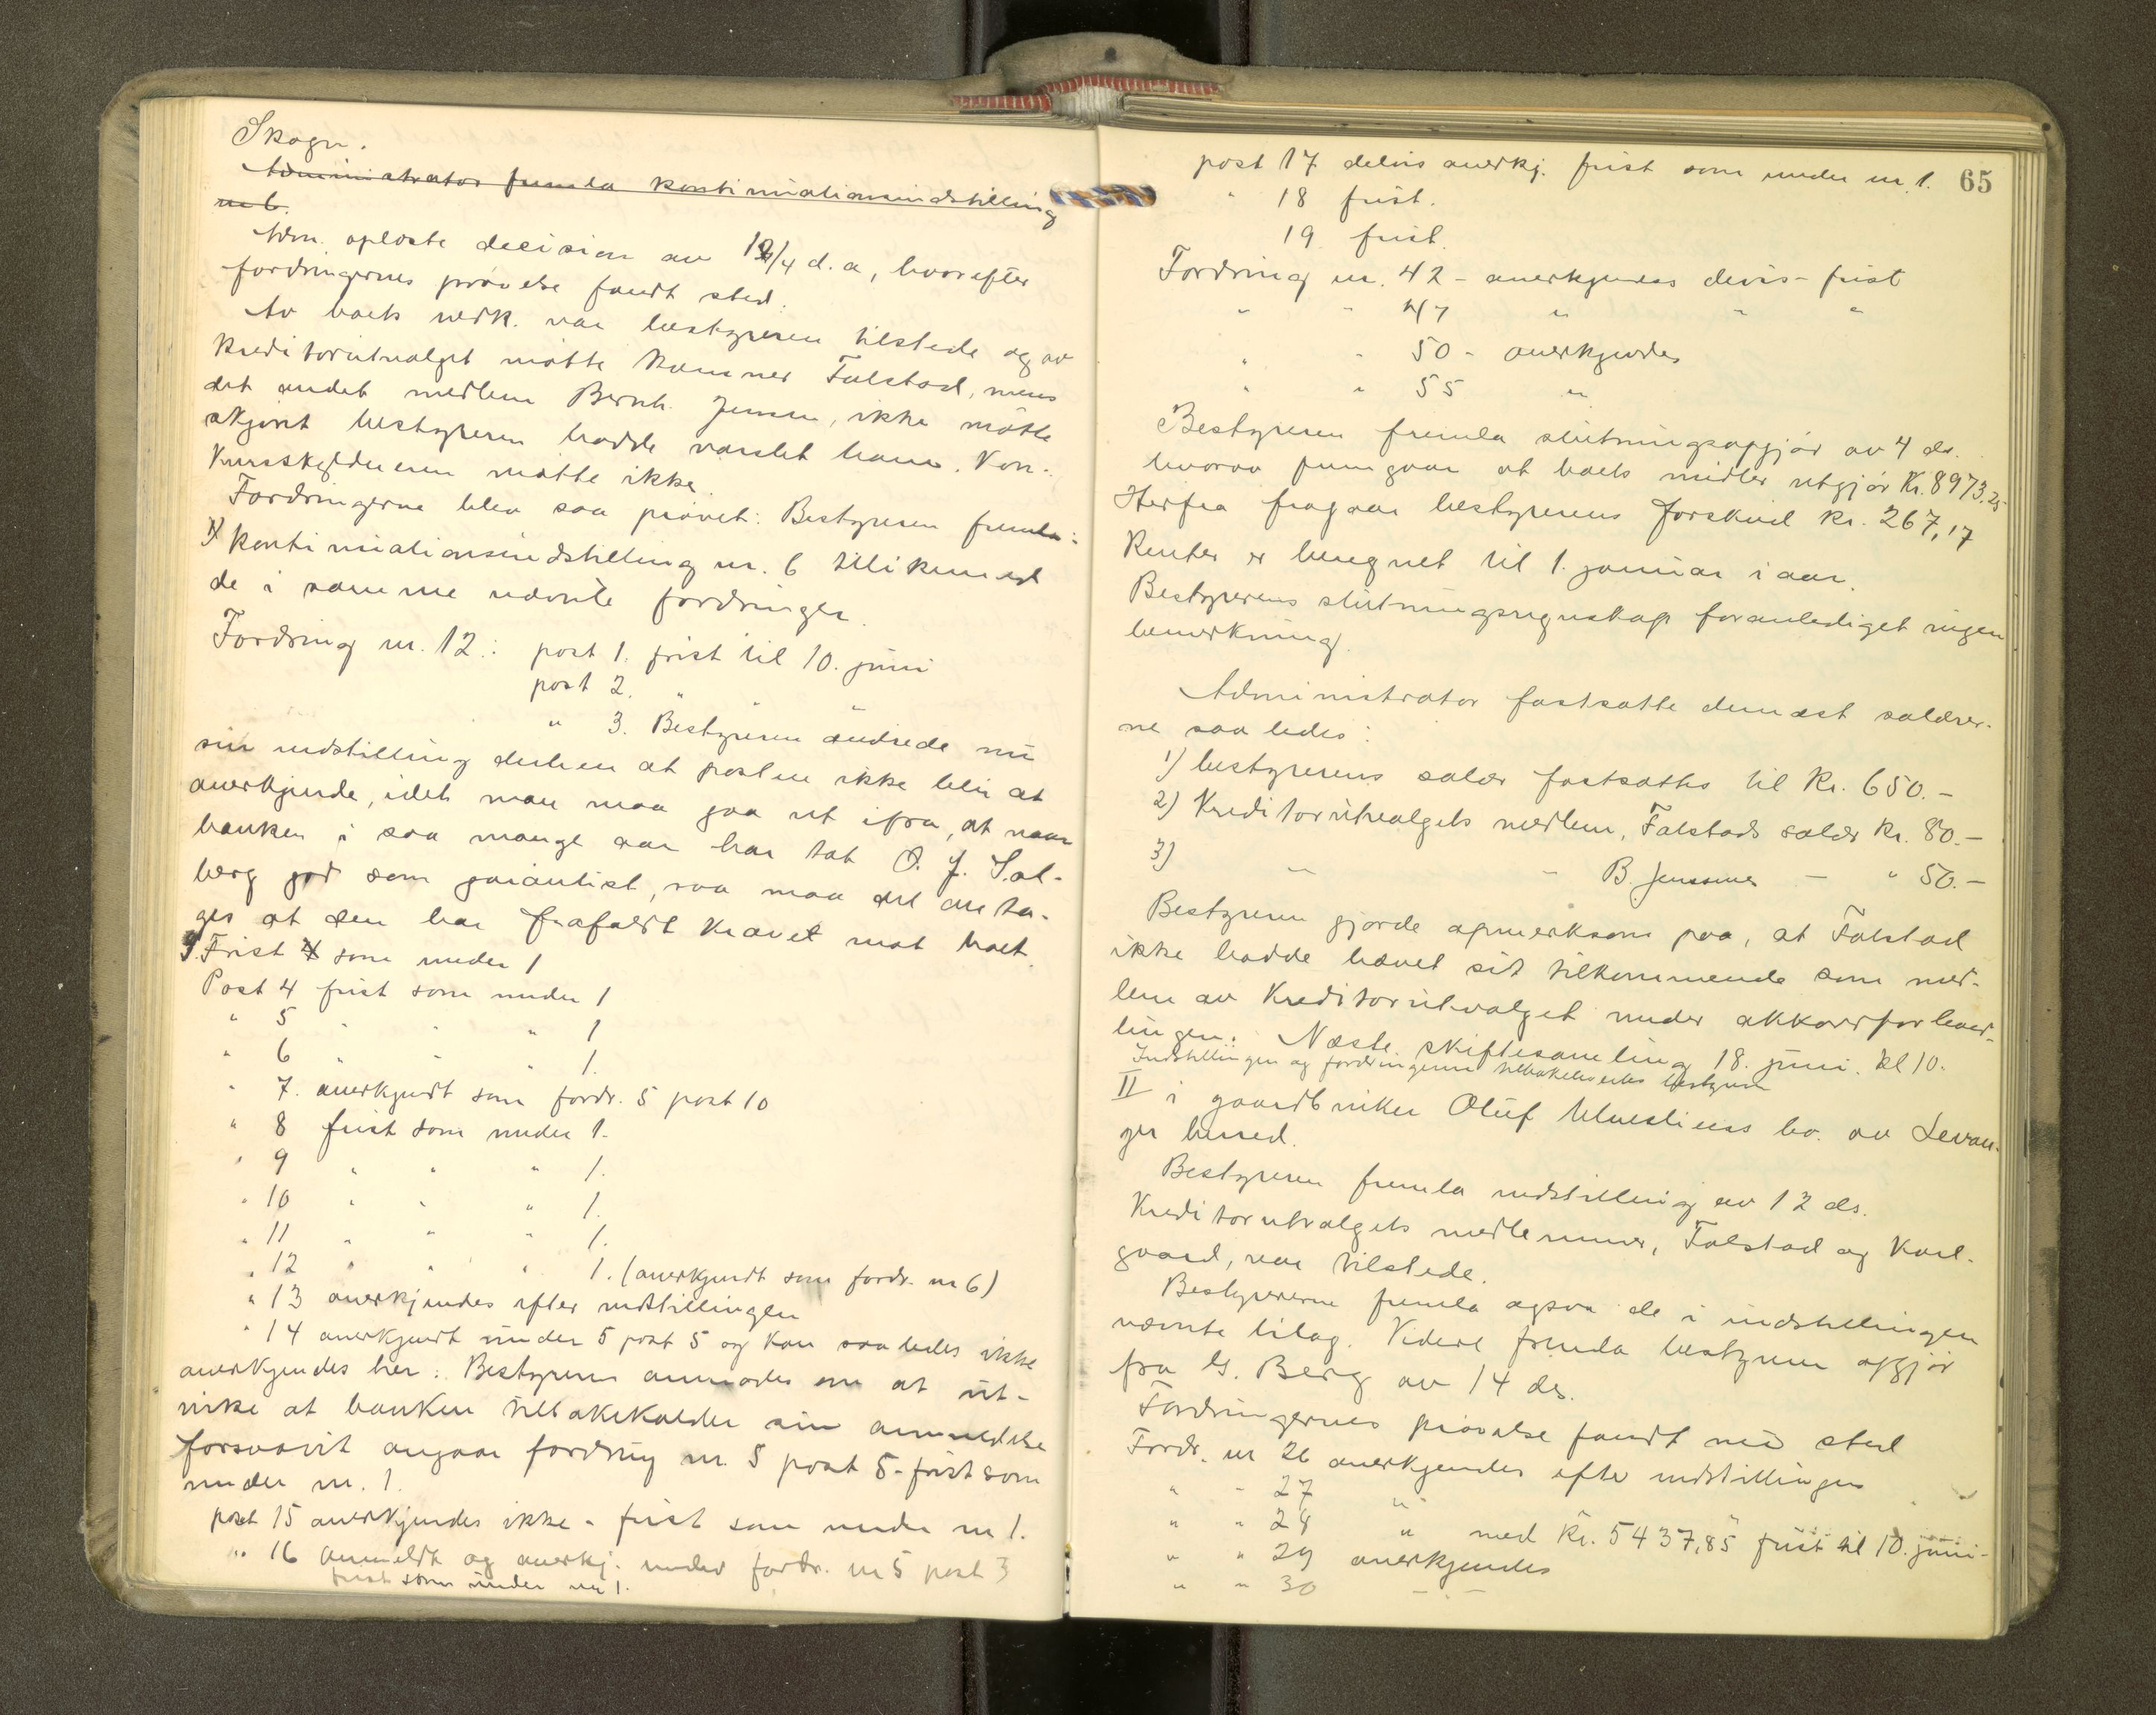 Skogn.
Administrator fremla kontinuationsindstilling
nr 6.
Adm. oplæste decision av 12/4 d.a, hvorefter
fordringernes prøvelse fandt sted.
Av boets vedk. var bestyreren tilstede og av
kreditorutvalget møtte kæmner Falstad, mens
det andet medlem Bernh. Jenssen, ikke møtte
skjønt bestyreren hadde varslet ham. Kon-
kursskyldneren møtte ikke.
Fordringerne blev saa prøvet: Bestyreren fremla:
1) kontinuationsindstilling nr. 6 tillikemed
de i samme nævnte fordringer.
Fordring nr. 12: post 1. frist til 10. juni
post 2. " " "
" 3. Bestyreren ændrede nu
sin indstilling derhen at posten ikke blir at
anerkjende, idet man maa gaa ut ifra, at naar
banken i saa mange aar har tat O. J. Sal-
berg god som garantist, saa maa det anta-
ges at den har frafaldt kravet mot boet.
Frist som under 1
Post 4 frist som under 1
" 5 " " " 1
" 6 " " " 1.
" 7. anerkjendt som fordr. 5 post 10
" 8 frist som under 1.
" 9 " " " 1.
" 10 " " " 1.
" 11 " " " 1.
" 12 " " " 1. (anerkjendt som fordr. nr 6)
" 13 anerkjendes efter indstillingen
" 14 anerkjendt under 5 post 5 og kan saaledes ikke
anerkjendes her: Bestyreren anmodes om at ut-
virke at banken tilbakekalder sin anmeldelse
forsaavit angaar fordring nr. 5 post 5 - frist som
under nr. 1.
post 15 anerkjendes ikke - frist som under nr 1.
" 16 anmeldt og anerkj. under fordr. nr 5 post 3
frist som under nr 1.
65
post 17 delvis anerkj. frist som under nr. 1.
" 18 frist.
19 frist.
Fordring nr. 42 - anerkjendes delvis - frist
" " 47 " " "
" " 50 - anerkjendes
" " 55 "
Bestyreren fremla slutningsopgjør av 4 ds.
hvorav fremgaar at boets midler utgjør Kr. 8973.25
Herfra fragaar bestyrerens forskud kr. 267,17
Renter er beregnet til 1. januar i aar.
Bestyrerens slutningsregnskap foranlediget ingen
bemerkning.
Administrator fastsatte dernæst salærer-
ne saaledes:
1) bestyrerens salær fastsattes til Kr. 650.-
2) Kreditorutvalgets medlem, Falstads salær kr. 80.-
3) " " B. Jenssens - " 50.-
Bestyreren gjorde opmerksom paa, at Falstad
ikke hadde hævet sit tilkommende som med-
lem av kreditorutvalget under akkordforhand-
lingen. Næste skiftesamling 18. juni. kl 10.
Indstillingen og fordringerne tilbakeleveredes bestyreren
II i gaardbruker Oluf bo. av Levan-
ger herred.
Bestyreren fremla indstilling av 12 ds.
Kreditorutvalgets medlemmer, Falstad og Karl-
gaard, var tilstede.
Bestyrerne fremla ogsaa de i indstillingen
nævnte bilag. Videre fremla bestyreren opgjør
fra G. Berg av 14 ds.
Fordringernes prøvelse fandt nu sted
Fordr. nr 26 anerkjendes efter indstillingen
" " 27 "
" " 28 " med kr. 5437,85 frist til 10. juni -
" " 29 anerkjendes
" " 30 - " -